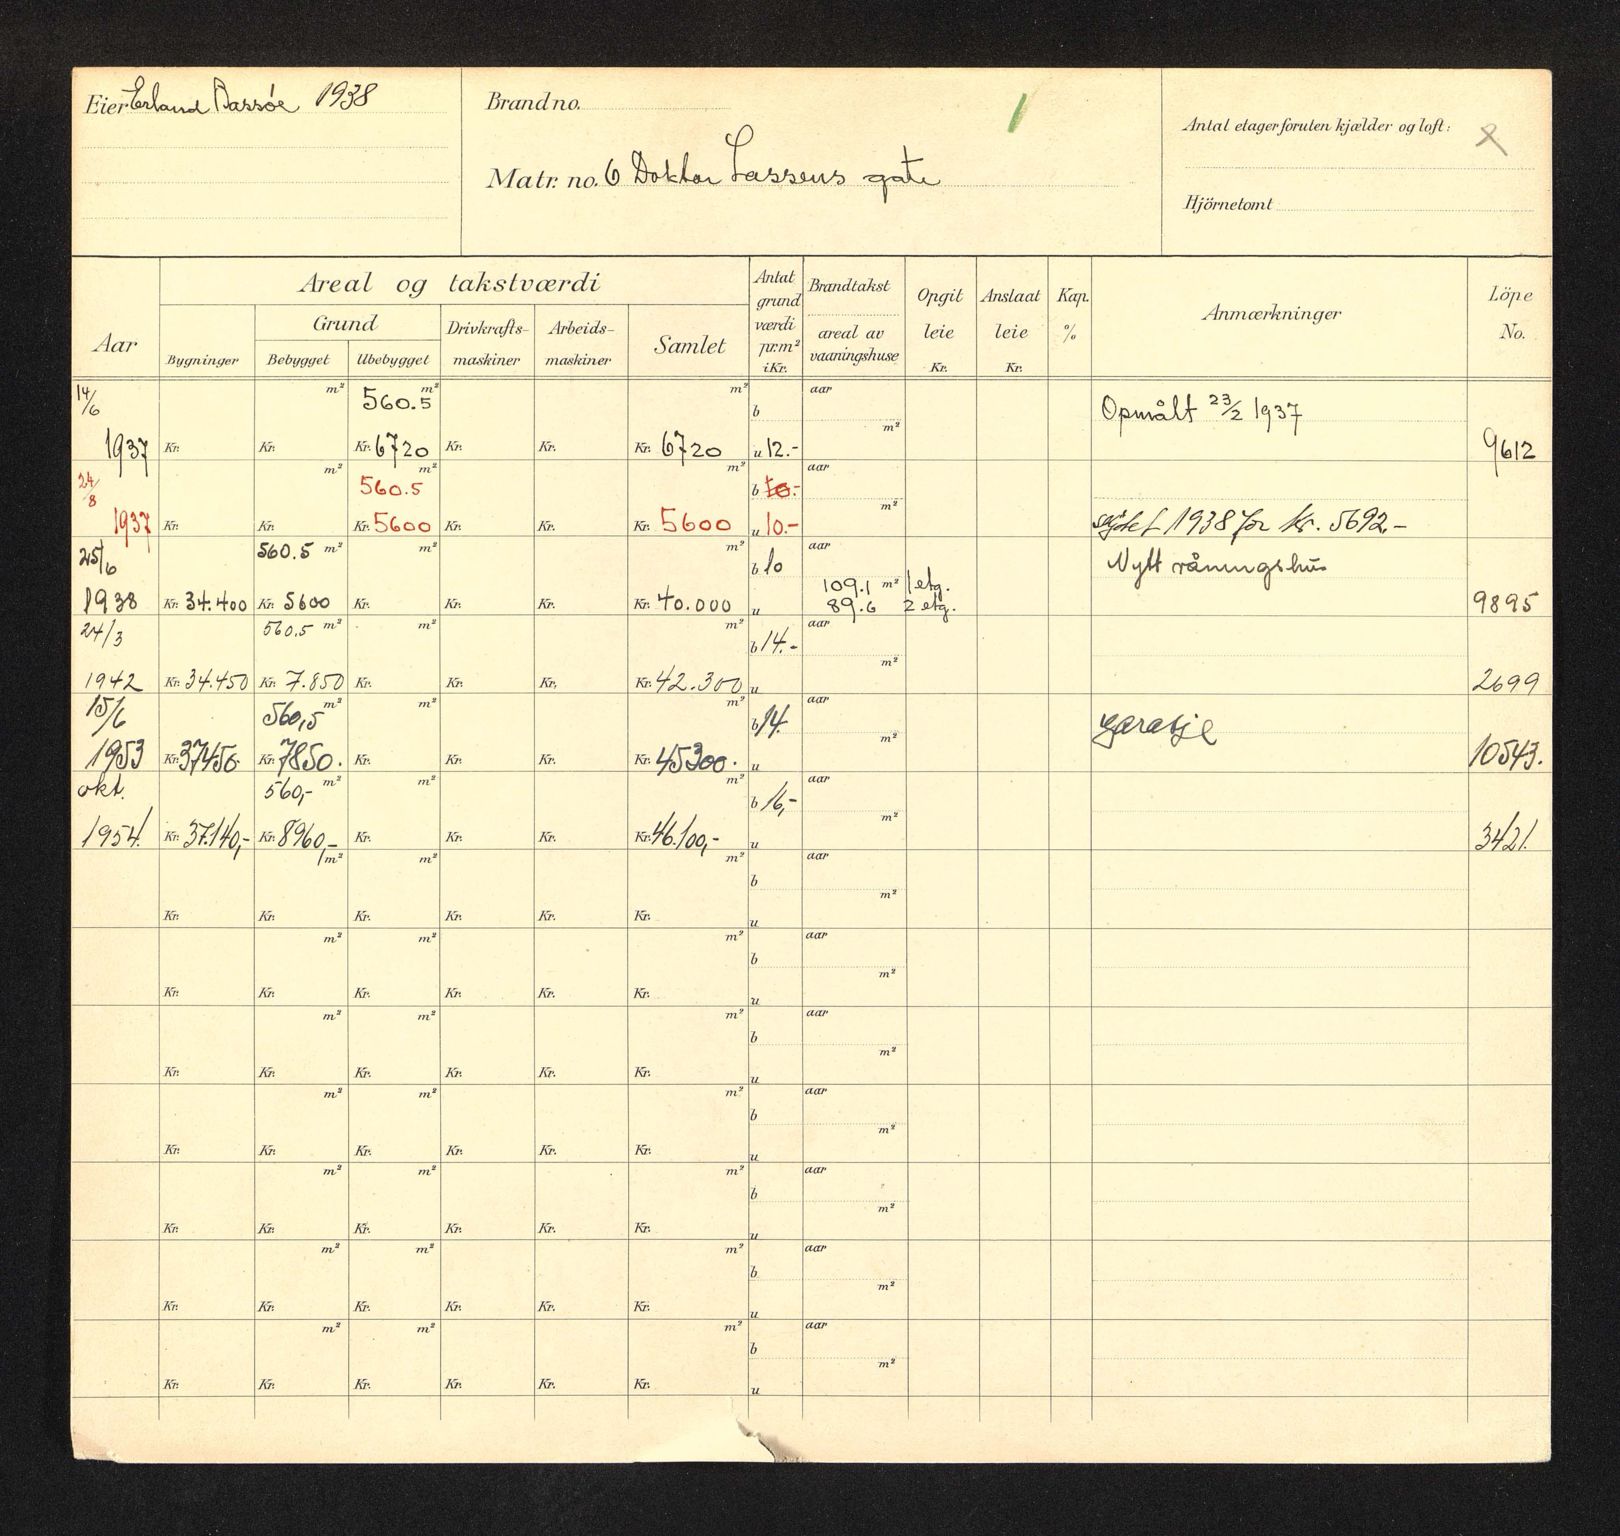 Eier Erland Bassøe 1938
Brand no.
Matr. no. 6 Doktor Lassens gate
1
Antal etager foruten kjælder og loft: 2
Hjörnetomt
Aar
Areal og takstværdi
Bygninger
Grund
Bebygget
Ubebygget
Drivkrafts-maskiner
Arbeids-maskiner
Samlet
Antat grundværdi pr. m² i Kr.
Brandtakst
areal av vaaningshuse
Opgit leie Kr.
Anslaat leie Kr.
Kap. %
Anmærkninger
Löpe No.
14/6 m² 560.5 m² m² b aar Opmålt 23/2 1937
1937 Kr. Kr. Kr. 6720 Kr. Kr. Kr. 6720 u 12.- m² 9612
24/8 m² 560.5 m² m² b 10.- aar
1937 Kr. Kr. Kr. 5600 Kr. Kr. Kr. 5600 u 10.- m² 1938 for kr. 5692,-
25/6 560.5 m² m² m² b 10 aar Nytt våningshus
109.1 m² 1 etg.
1938 Kr. 34.400 Kr. 5600 Kr. Kr. Kr. Kr. 40.000 u 89.6 2 etg. 9895
24/3 560.5 m² m² m² b 14.- aar
1942 Kr. 34.450 Kr. 7.850 Kr. Kr. Kr. Kr. 42.300 u m² 2699
15/6 560,5 m² m² m² b 14. aar garasje
1953 Kr. 37450 Kr. 7850. Kr. Kr. Kr. Kr. 45300. u m² 10543.
okt. 560,- m² m² m² b 16,- aar
1954. Kr. 37.140,- Kr. 8960,- Kr. Kr. Kr. Kr. 46.100,- u m² 3421.
m² m² m² b aar
Kr. Kr. Kr. Kr. Kr. Kr. u m²
m² m² m² b aar
Kr. Kr. Kr. Kr. Kr. Kr. u m²
m² m² m² b aar
Kr. Kr. Kr. Kr. Kr. Kr. u m²
m² m² m² b aar
Kr. Kr. Kr. Kr. Kr. Kr. u m²
m² m² m² b aar
Kr. Kr. Kr. Kr. Kr. Kr. u m²
m² m² m² b aar
Kr. Kr. Kr. Kr. Kr. Kr. u m²
m² m² m² b aar
Kr. Kr. Kr. Kr. Kr. Kr. u m²